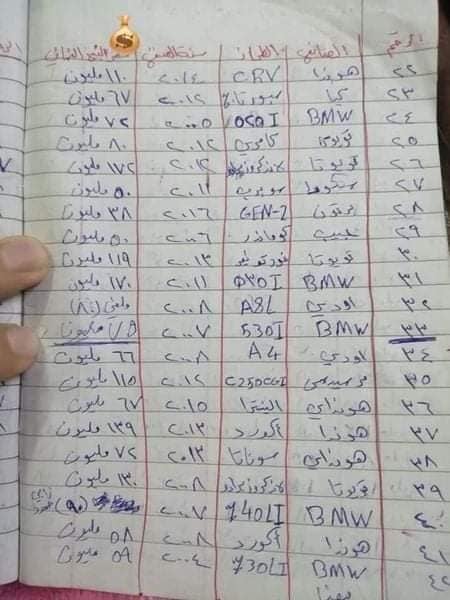 الرقم الصانعي الطراز سنة الصنع سعر البيع النهائي
٢٢ هوندا CRV ٢٠١٤ ١١٠ مليون
٢٣ كيا سبورتاج ٢٠١٢ ٦٧ مليون
٢٤ BMW ٥٢٥I ٢٠٠٥ ٧٢ مليون
٢٥ تويوتا كامري ٢٠١٢ ٨٠ مليون
٢٦ تويوتا لاندكروزر ١٧٢ مليون
٢٧ ٢٠١١ ٥٠ مليون
٢٨ بروتون GEN-2 ٢٠١٦ ٣٨ مليون
٢٩ جيب ٢٠٠٦ ٥٠ مليون
٣٠ تويوتا فورتونر ٢٠١٣ ١١٩ مليون
٣١ BMW ٥٣٠I ٢٠١١ ١٧٠ مليون
٣٢ اودي A8L ٢٠٠٨ (٨٤)
٣٣ BMW 530I ٢٠٠٧ مليون
٣٤ اودي A4 ٢٠٠٨ ٦٦ مليون
٣٥ مرسيدس C250CGI ٢٠١٢ ١١٥ مليون
٣٦ هونداي النترا ٢٠١٥ ٦٧ مليون
٣٧ هوندا اكورد ٢٠١٣ ١٣٩ مليون
٣٨ هونداي سوناتا ٢٠١٣ ٧٢ مليون
٣٩ تويوتا لاندكروزر ٢٠٠٨ ١٣٠ مليون
٤٠ BMW 740LI ٢٠٠٧ (٩٥)
٤١ هوندا اكورد ٢٠٠٨ ٥٨ مليون
٤٢ BMW 730LI ٢٠٠٤ ٥٩ مليون